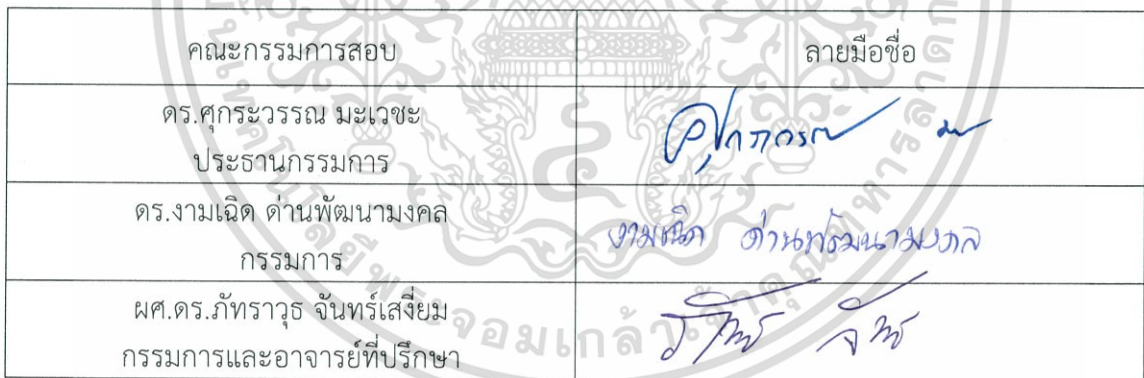 คณะกรรมการสอบ ลายมือชื่อ
ดร.ศุกระวรรณ มะเวชะ
ประธานกรรมการ
ดร.งามเฉิด ด่านพัฒนามงคล งามเฉิด ด่านพัฒนามงคล
กรรมการ
ผศ.ดร.ภัทราวุธ จันทร์เสงี่ยม
กรรมการและอาจารย์ที่ปรึกษา